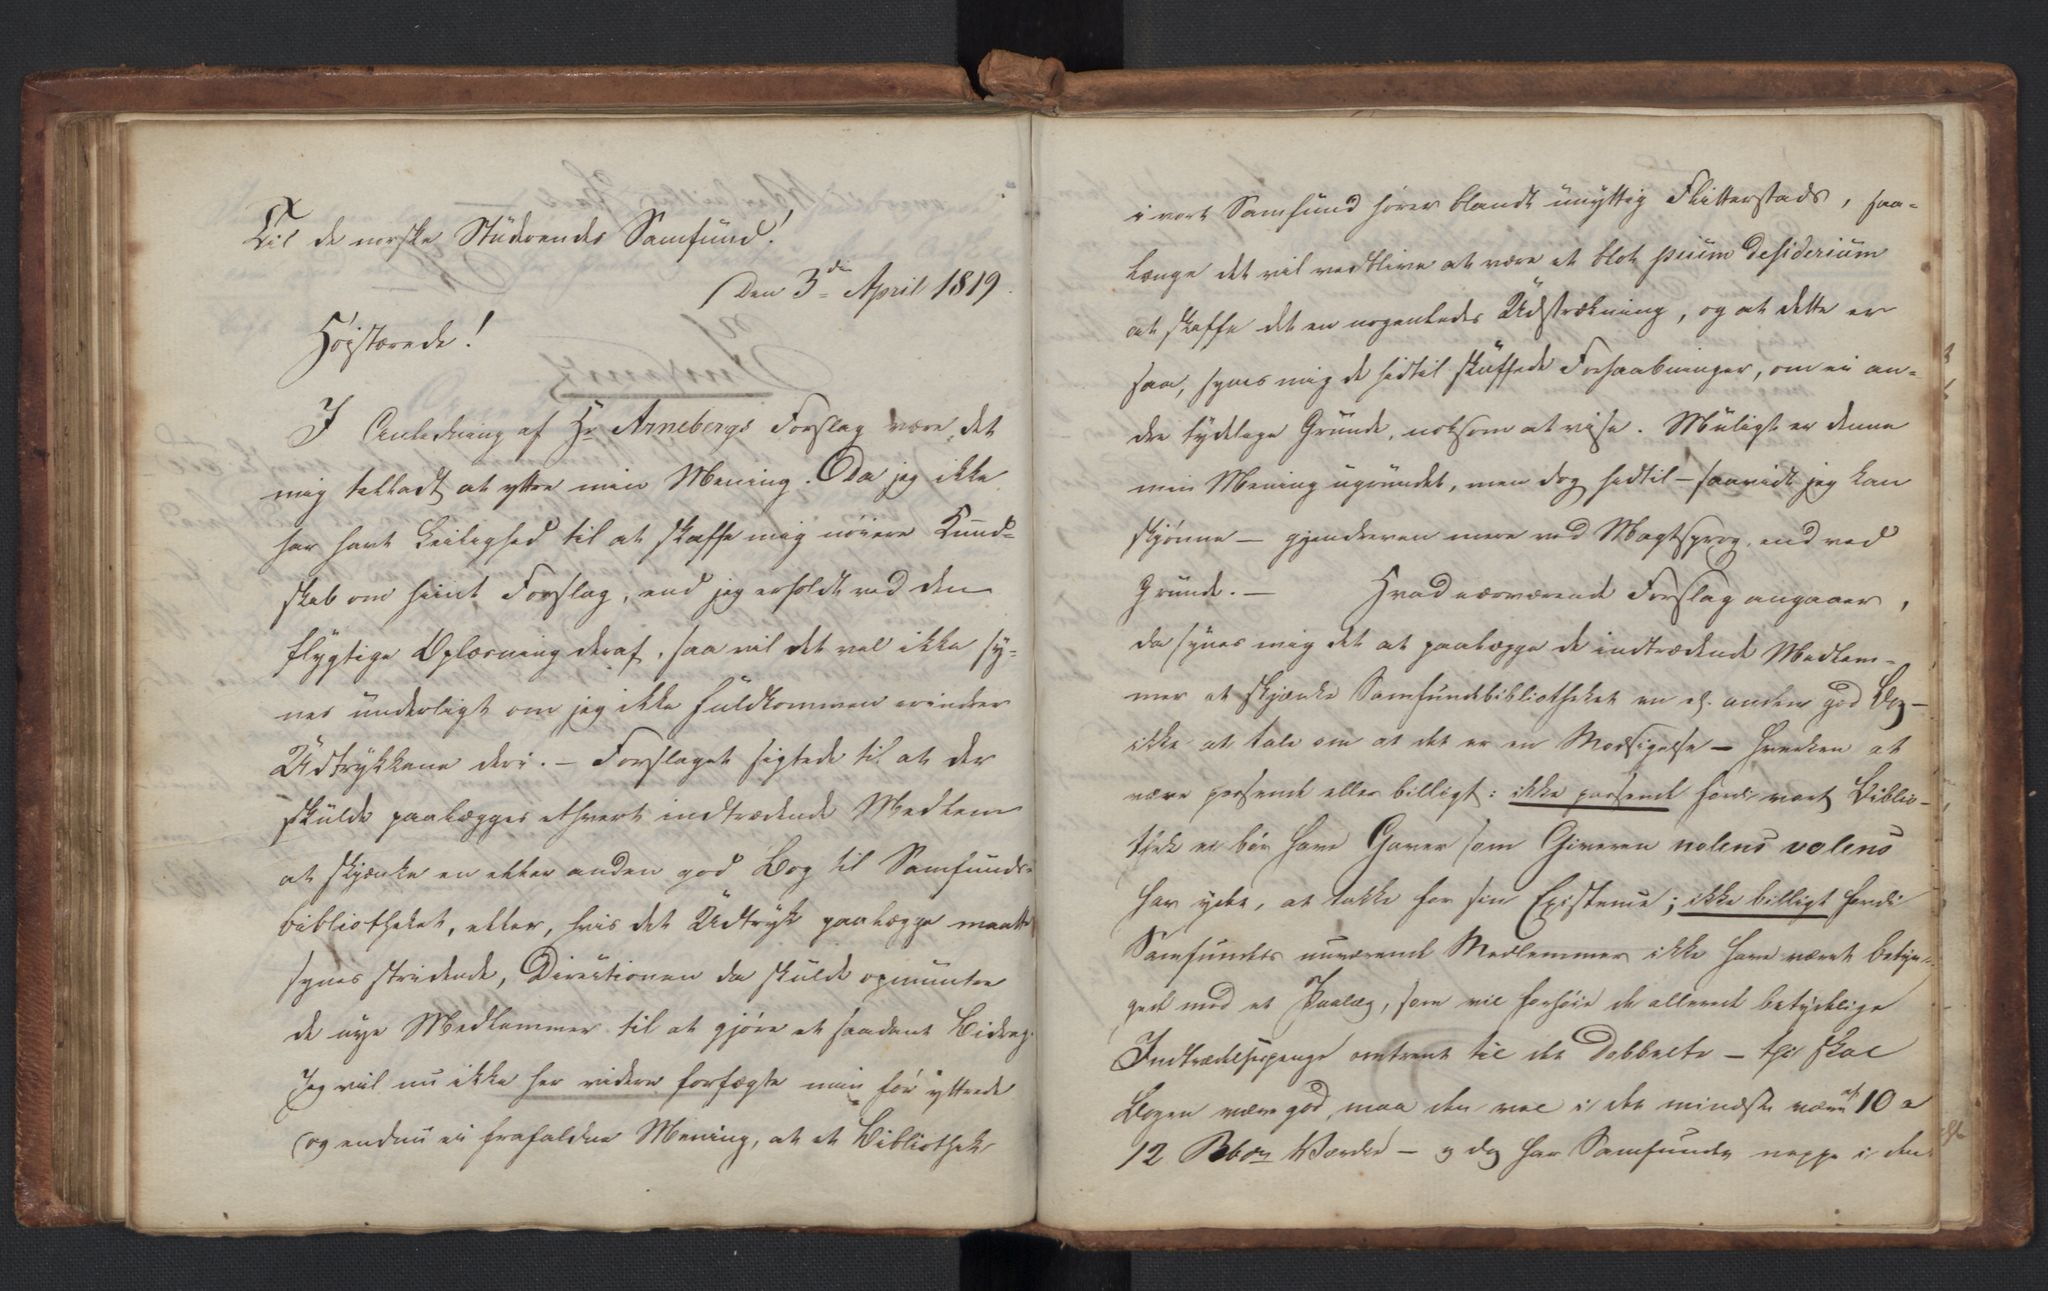 Til de norske Studerendes Samfund!
Den 3die April 1819.
Høistærede!
I Anledning af Hr Arnebergs Forslag være det
mig tilladt at yttre min Mening. Da jeg ikke
har havt Leilighed til at skaffe mig nöiere Kund-
skab om hiint Forslag, end jeg erholdt ved den
flygtige Oplæsning deraf, saa vil det vel ikke sy-
nes underligt om jeg ikke fuldkommen erindrer
Udtrykkene deri. – Forslaget sigtede til at der
skulde paalægges ethvert indtrædende Medlem
at skjænke en eller anden god Bog til Samfunds-
bibliotheket, eller, hvis det Udtryk paalægge maatte
synes stridende, Directionen da skulde opmuntre
de nye Medlemmer til at gjöre et saadant Bidrag.
Jeg vil nu ikke her videre forfægte min för yttrede
og endnu ei frafaldne Mening, at et Bibliothek
i vort Samfund hörer blandt unyttig Flitterstads, saa-
længe det vil vedblive at være et blot pium desiderium
at skaffe det en nogenledes Udstrækning, og at dette er
saa, synes mig de hidtil skuffede Forhaabninger, om ei an-
dre tydelige Grunde, noksom at vise. Muligt er denne
min Mening ugrundet, men dog hidtil – saavidt jeg kan
skjønne – gjendreven mere ved Magtsprog, end ved
Grunde. – Hvad nærværende Forslag angaaer,
da synes mig det at paalægge de indtrædende Medlem-
mer at skjænke Samfundsbibliotheket en el. anden god Bog –
ikke at tale om at det er en Modsigelse – hverken at
være passende eller billigt: ikke passende fordi vort Biblio-
thek ei bör have Gaver som Giveren nolens volens
har yde, at takke for sin Existence; ikke billigt fordi
Samfundets nuværende Medlemmer ikke have været betyn-
gede med et Paalæg, som vil forhöie de allerede betydelige
Indtrædelsespenge omtrent til det Dobbelte – thi skal
Bogen være god, maa den vel i det mindste være af 10 a
12 Rbdrs Værdie – og dog har Samfundet neppe i den